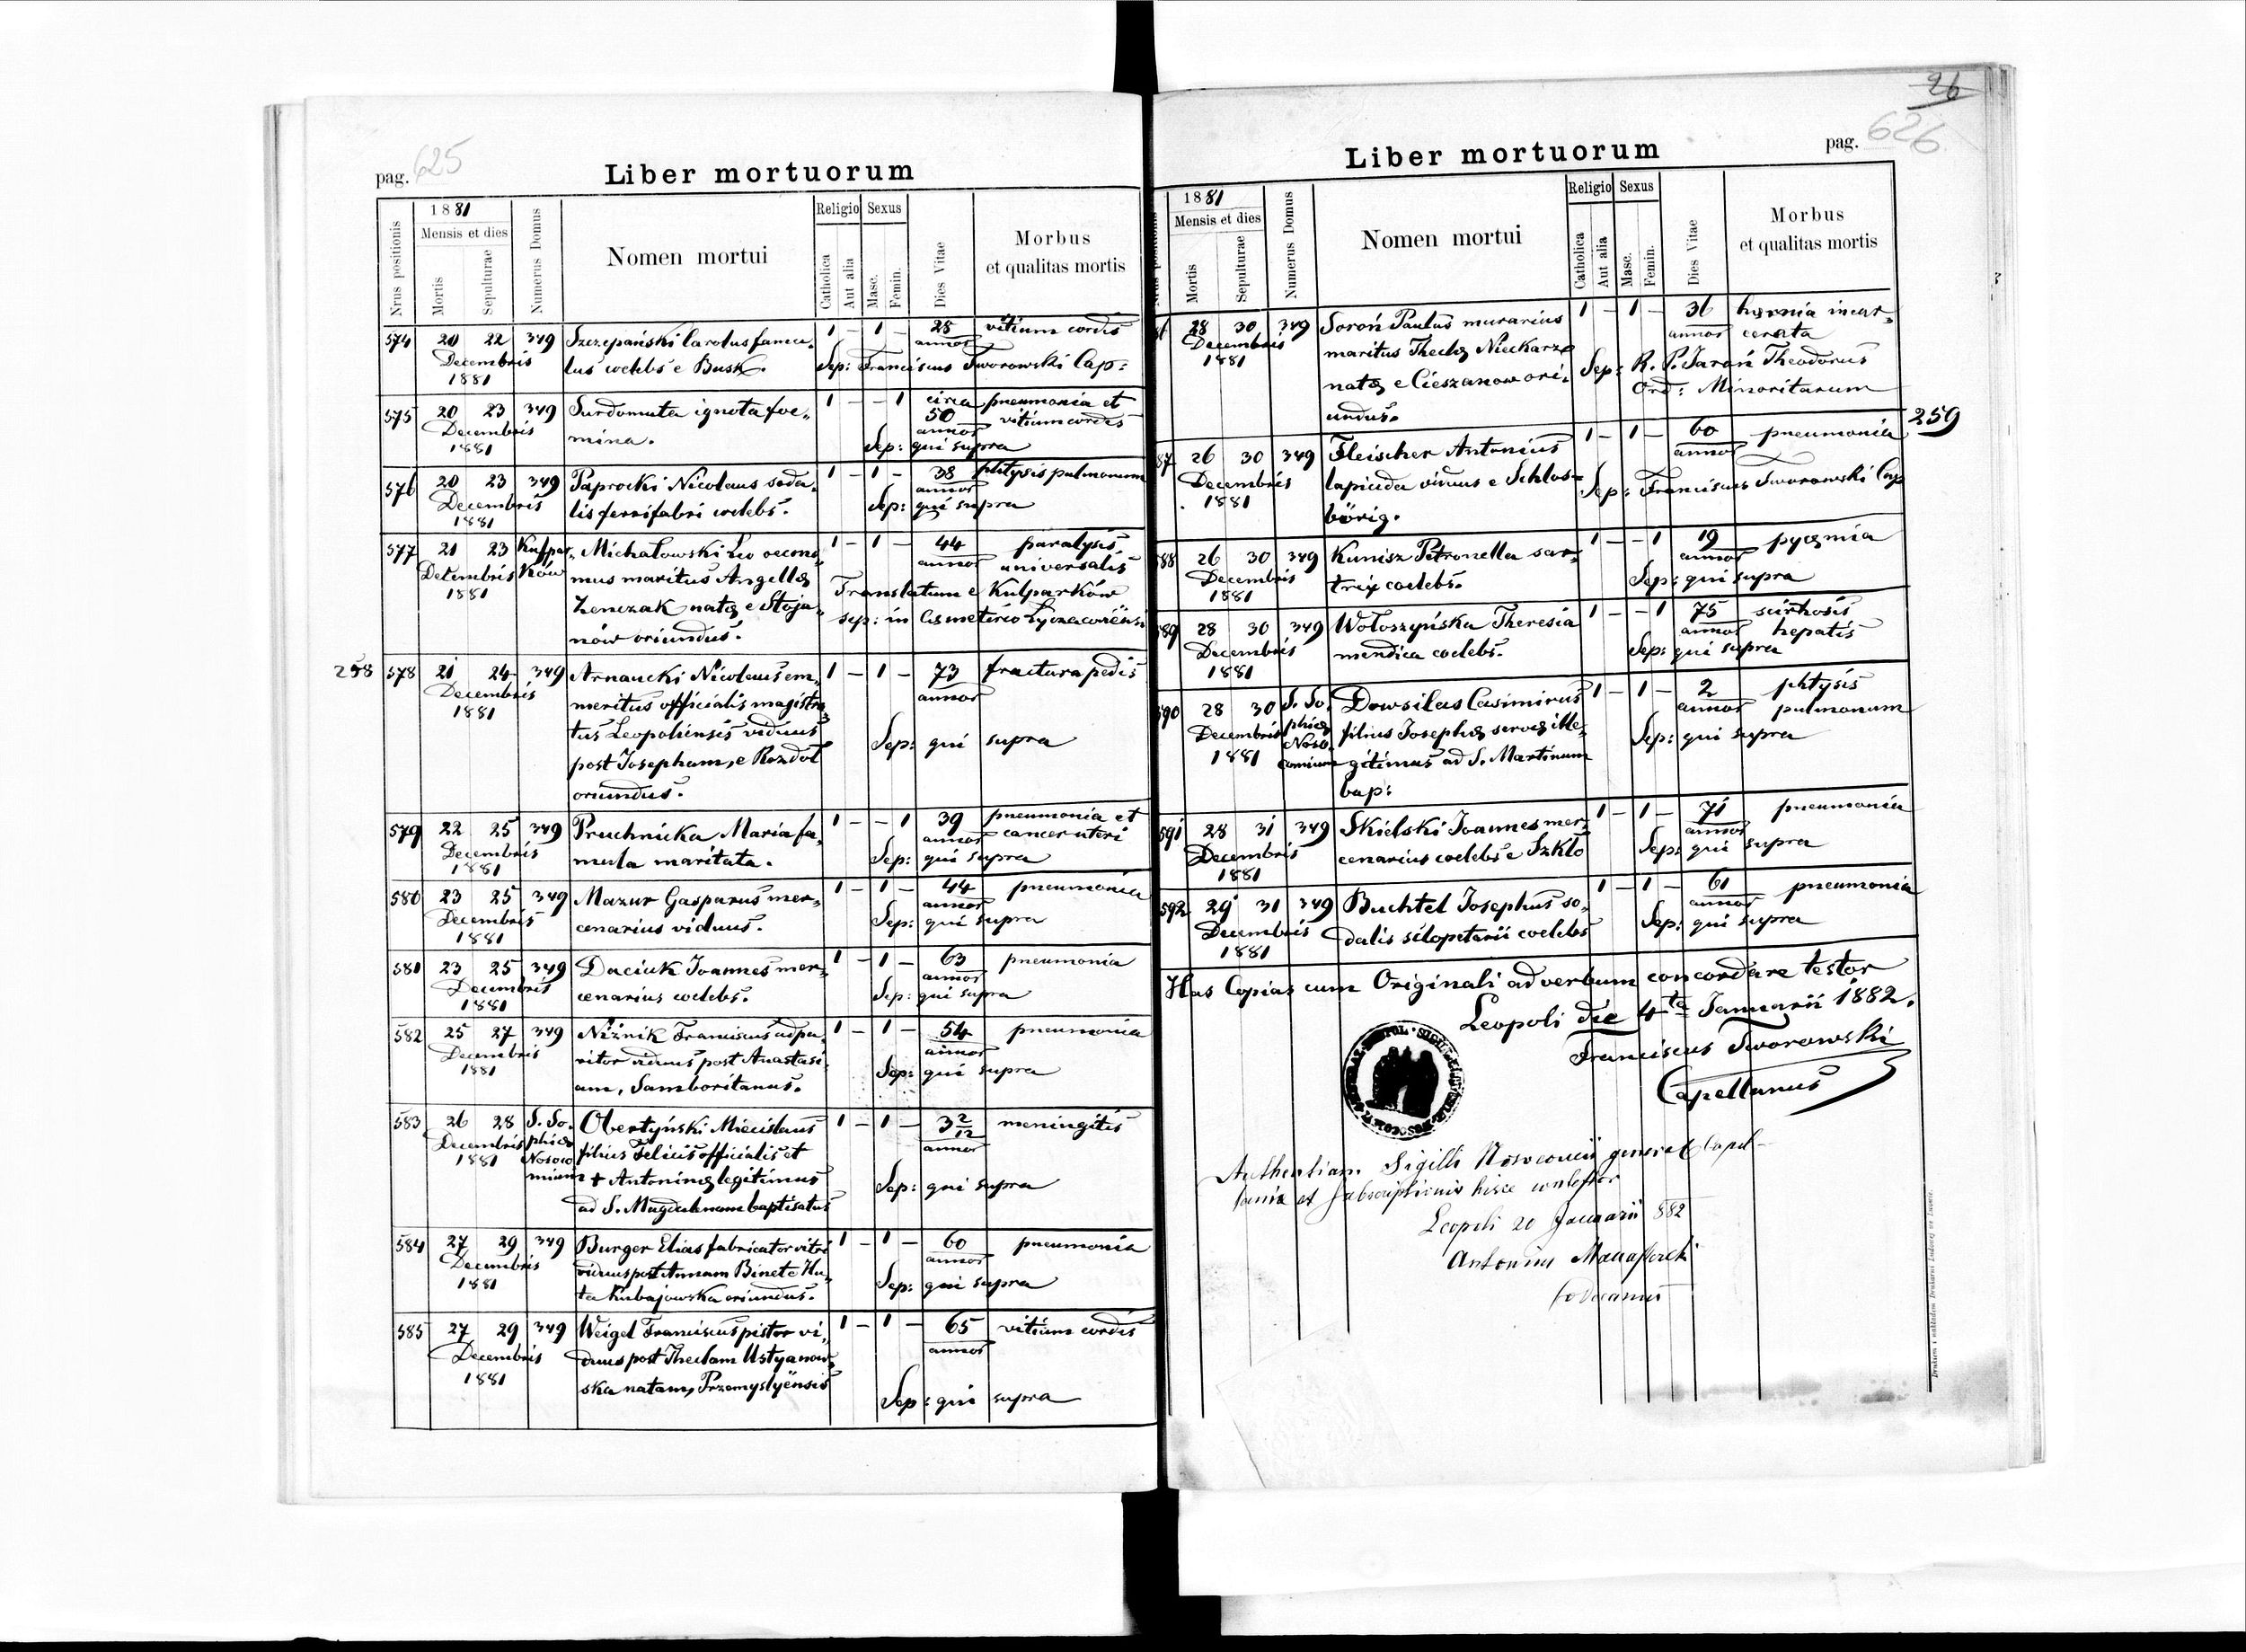 pag. 625
Liber mortuorum
Nrus positionis
1881
Mensis et dies
Mortis
Sepulturae
Numerus Domus
Nomen mortui
Religio
Catholica
Aut alia
Sexus
Masc.
Femin.
Dies Vitae
Morbus
et qualitas mortis
574 20 22 349 Szczepański Carolus famu, 1 – 1 – 28 vitium cordis
Decembris lus coelebs e Busk. annor
1881 Sep: Franciscus Tworowski Cap:
575 20 23 349 Surdomuta ignota foe, 1 – – 1 circa pneumonia et
Decembris mina. 50 vitium cordis
1881 annor
Sep: qui supra
576 20 23 349 Paprocki Nicolaus soda, 1 – 1 – 38 phtysis pulmonum
Decembris lis ferrifabri coelebs. annor
1881 Sep: qui supra
577 21 23 Kulpar, Michałowski Leo oecono, 1 – 1 – 44 paralysis
Decembris ków mus maritus Angellę annor universalis
1881 Zenczak natę e Stoja, Translatum e Kulparków
nów oriundus. sep: in Cismetirio Lyczacoviënsi
258 578 21 24 349 Arnaucki Nicolaus em, 1 – 1 – 73 fractura pedis
Decembris meritus officialis magistra annor
1881 tus Leopoliensis viduus
post Josepham, e Rozdoł Sep: qui supra
oriundus.
579 22 25 349 Pruchnicka Maria fa, 1 – – 1 39 pneumonia et
Decembris mula maritata. annor cancer uteri
1881 Sep: qui supra
580 23 25 349 Mazur Gasparus mer, 1 – 1 – 44 pneumonia
Decembris cenarius viduus. annor
1881 Sep: qui supra
581 23 25 349 Daciuk Joannes mer, 1 – 1 – 63 pneumonia
Decembris cenarius coelebs. annor
1881 Sep: qui supra
582 25 27 349 Niżnik Franciscus adpa, 1 – 1 – 54 pneumonia
Decembris ritor viduus post Anastasi, annor
1881 am, Samboritanus. Sep: qui supra
583 26 28 S. So, Obertyński Miecislaus 1 – 1 – 3 2/12 meningitis
Decembris phię filius Felicis officialis et annor
1881 Nosoco mium + Antoninę legitimus Sep: qui supra
ad S. Magdalenam baptisatus
584 27 29 349 Burger Elias fabricator vitri 1 – 1 – 60 pneumonia
Decembris viduus post Annam Binet e Hu, annor
1881 ta Kubajowska oriundus. Sep: qui supra
585 27 29 349 Weigel Franciscus pistor vi, 1 – 1 – 65 vitium cordis
Decembris duus post Theclam Ustyanow, annor
1881 ska natam, Przemyslyënsis
Sep: qui supra
26
pag. 626
Liber mortuorum
1881
Mensis et dies
Mortis
Sepulturae
Numerus Domus
Nomen mortui
Religio
Catholica
Aut alia
Sexus
Masc.
Femin.
Dies Vitae
Morbus
et qualitas mortis
86 28 30 349 Soroń Paulus murarius 1 – 1 – 36 hęrnia incar,
Decembris maritus Theclę Nieckarz annor cerata
1881 natę e Cieszanow ori, Sep: R. P. Jaroń Theodorus
undus. Ord: Minoritarum
259
87 26 30 349 Fleischer Antonius 1 – 1 – 60 pneumonia
Decembris lapicida viduus e Schlos= annor
1881 börig. Sep: Franciscus Tworowski Cap
588 26 30 349 Kunisz Petronella sar, 1 – – 1 19 pyęmia
Decembris trix coelebs. annor
1881 Sep: qui supra
589 28 30 349 Wołoszyńska Theresia 1 – – 1 75 scirhosis
Decembris mendica coelebs. annor hepatis
1881 Sep: qui supra
590 28 30 S. So, Dowsilas Casimirus 1 – 1 – 2 phtysis
Decembris phię filius Josephę servę ille, annor pulmonum
1881 Noso, comium gitimus ad S. Martinum Sep: qui supra
bap:
591 28 31 349 Skielski Joannes mer, 1 – 1 – 71 pneumonia
Decembris cenarius coelebs e Szkło annor
1881 Sep: qui supra
592 29 31 349 Buchtel Josephus so, 1 – 1 – 61 pneumonia
Decembris dalis silopetarii coelebs annor
1881 Sep: qui supra
Has Copias cum Originali ad verbum concordare testor
Leopoli die 4ta Januarii 1882.
Franciscus Tworowski
Capellanus
Authentiam Sigilli Nosocomii general Capel-
laniæ et subscriptionis hisce contestor
Leopoli 20 Januarii 882
Antonius